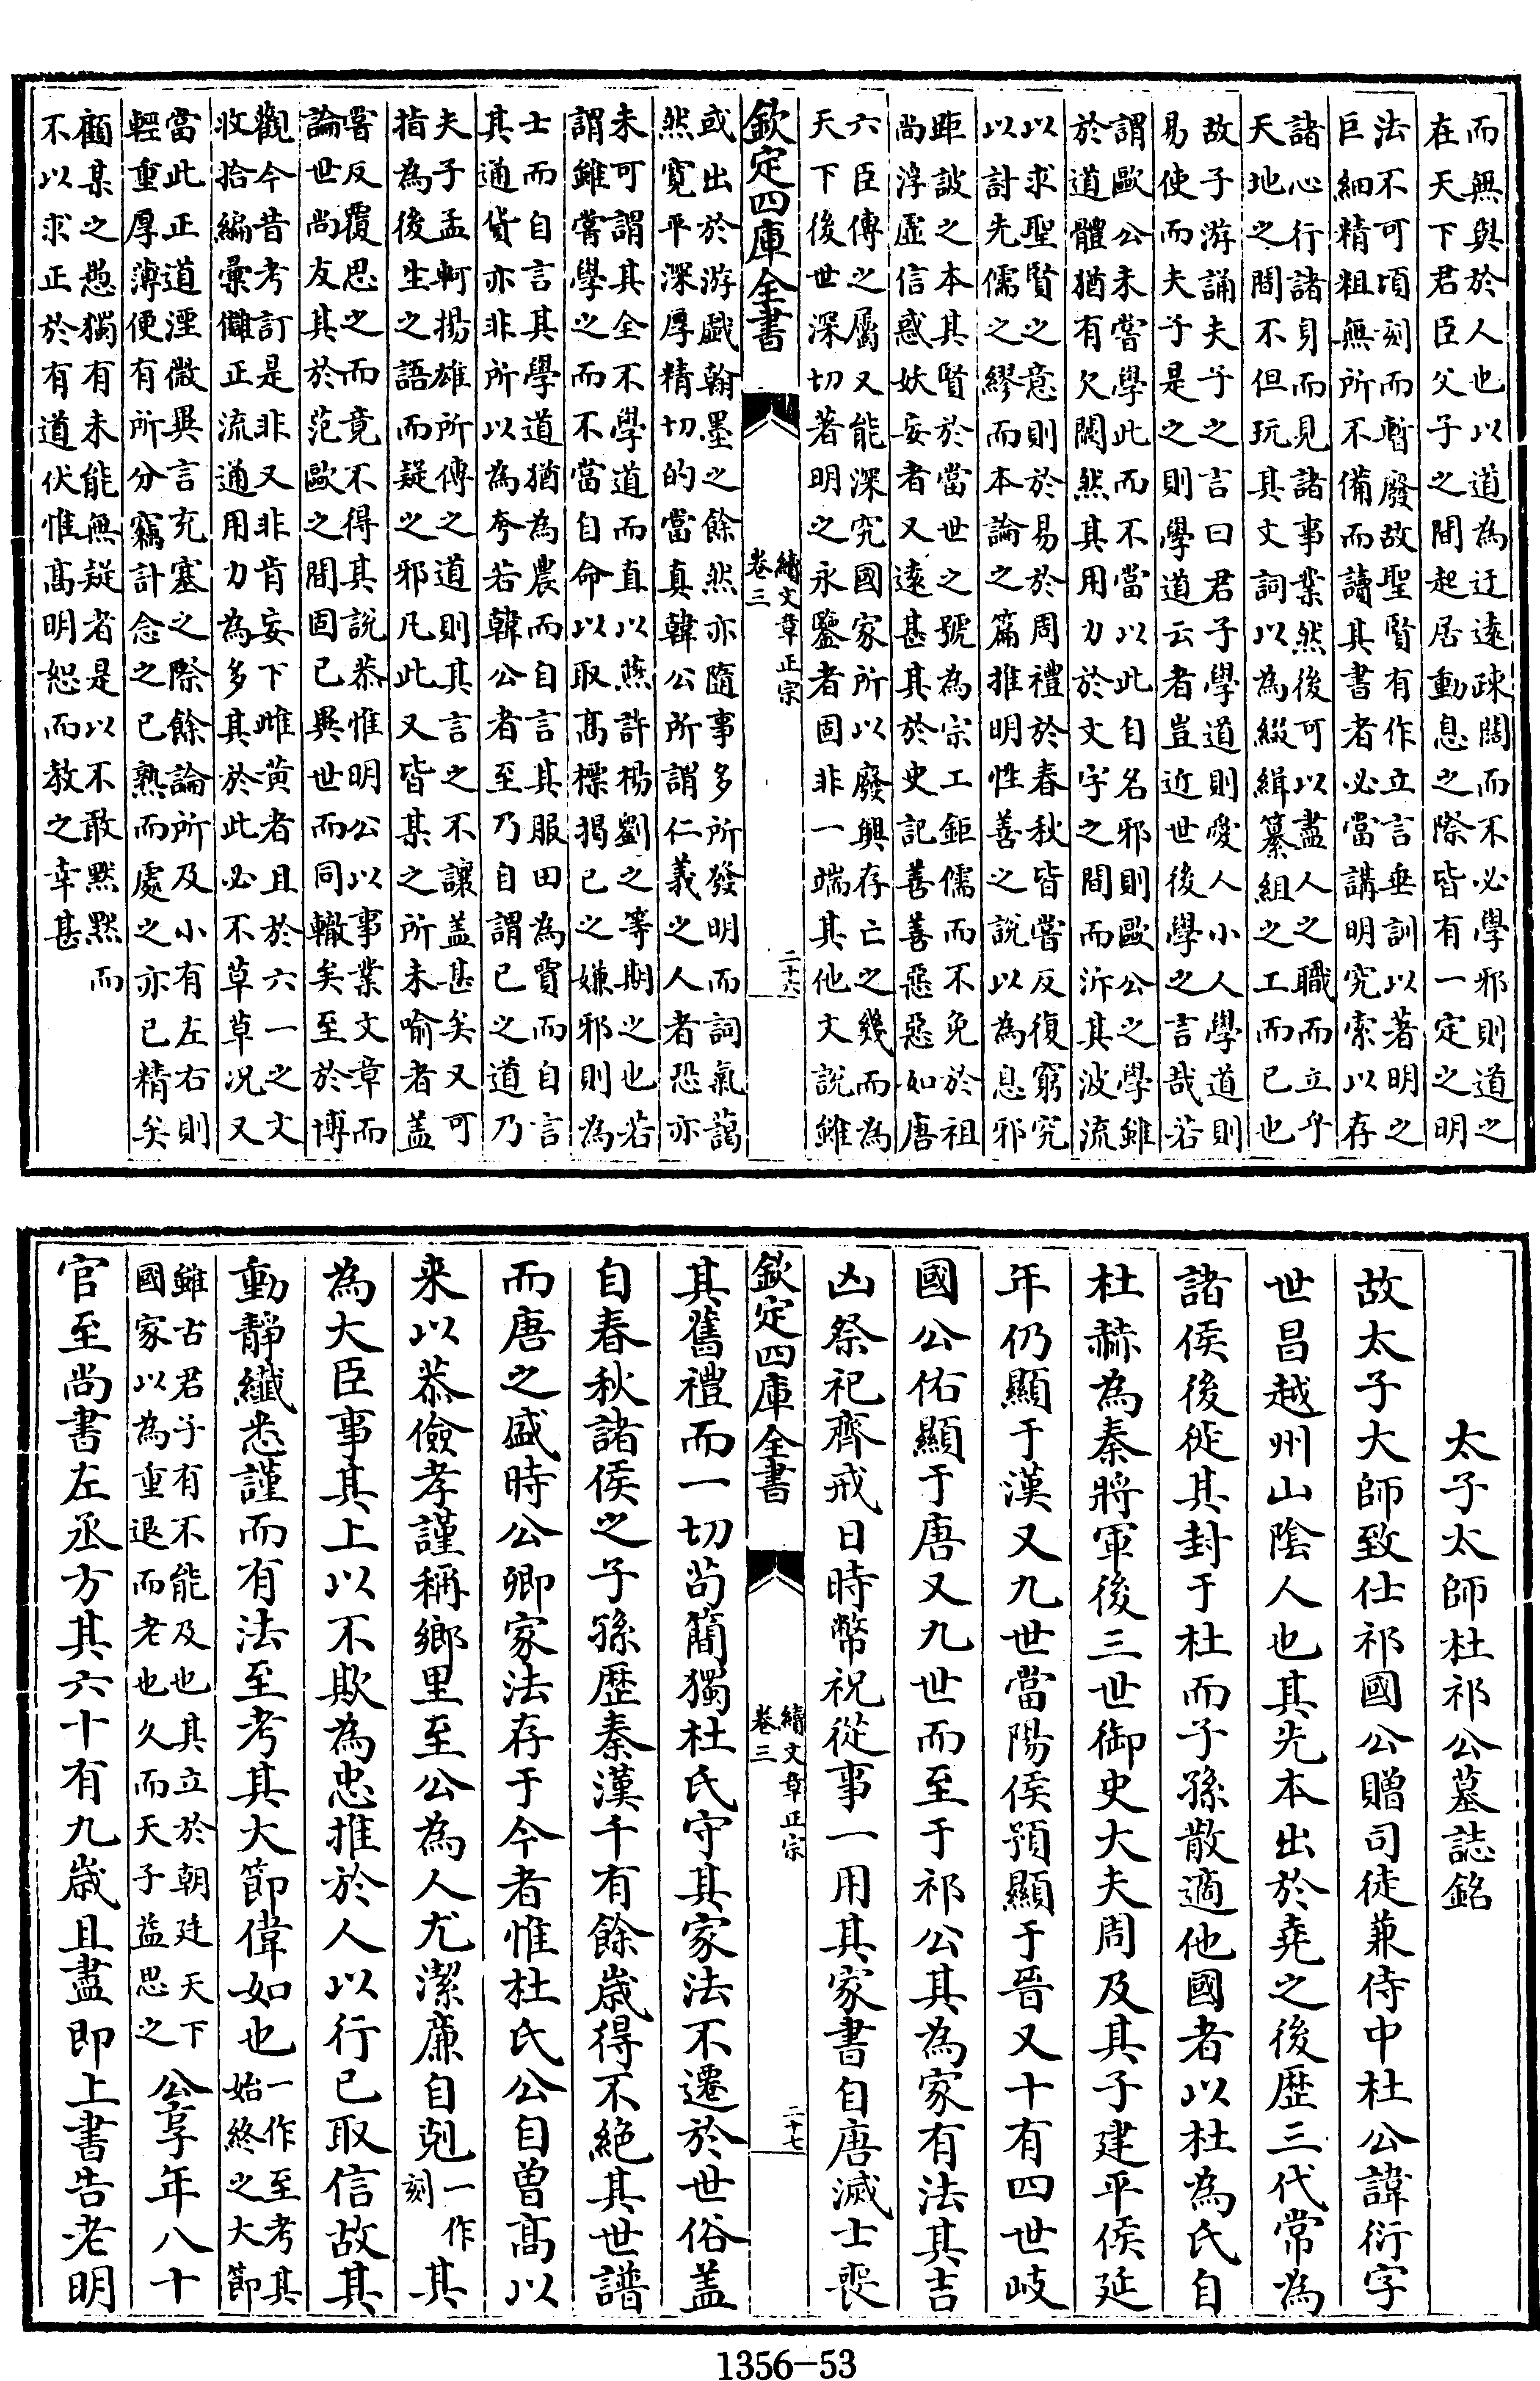 而無與於人也以道為迂遠疎闊而不必學邪則道之
在天下君臣父子之間起居動息之際皆有一定之明
法不可頃刻而暫廢故聖賢有作立言垂訓以著明之
巨細精粗無所不備而讀其書者必當講明究索以存
諸心行諸身而見諸事業然後可以盡人之職而立乎
天地之間不但玩其文詞以為綴緝纂組之工而已也
故子游誦夫子之言曰君子學道則愛人小人學道則
易使而夫子是之則學道云者豈近世後學之言哉若
謂歐公未嘗學此而不當以此自名邪則歐公之學雖
於道體猶有欠闕然其用力於文字之間而泝其波流
以求聖賢之意則於易於周禮於春秋皆嘗反復窮究
以討先儒之繆而本論之篇推明性善之說以為息邪
距詖之本其賢於當世之號為宗工鉅儒而不免於祖
尚浮虛信惑妖妄者又遠甚其於史記善善惡惡如唐
六臣傳之屬又能深究國家所以廢興存亡之幾而為
天下後世深切著明之永鑒者固非一端其他文說雖
欽定四庫全書
續文章正宗
卷三
二十六
或出於游戲翰墨之餘然亦隨事多所發明而詞氣藹
然寬平深厚精切的當真韓公所謂仁義之人者恐亦
未可謂其全不學道而直以燕許楊劉之等期之也若
謂雖嘗學之而不當自命以取高標揭己之嫌邪則為
士而自言其學道猶為農而自言其服田為賈而自言
其通貨亦非所以為夸若韓公者至乃自謂己之道乃
夫子孟軻揚雄所傳之道則其言之不讓盖甚矣又可
指為後生之語而疑之邪凡此又皆某之所未喻者盖
嘗反覆思之而竟不得其說恭惟明公以事業文章而
論世尚友其於范歐之間固已異世而同轍矣至於博
觀今昔考訂是非又非肯妄下雌黃者且於六一之文
收拾編彙讎正流通用力為多其於此必不草草况又
當此正道湮微異言充塞之際餘論所及小有左右則
輕重厚薄便有所分竊計念之已熟而處之亦已精矣
顧某之愚獨有未能無疑者是以不敢默默而
不以求正於有道伏惟高明恕而教之幸甚
太子太師杜祁公墓誌銘
故太子大師致仕祁國公贈司徒兼侍中杜公諱衍字
世昌越州山陰人也其先本出於堯之後歴三代常為
諸侯後徙其封于杜而子孫散適他國者以杜為氏自
杜赫為秦將軍後三世御史大夫周及其子建平侯延
年仍顯于漢又九世當陽侯預顯于晉又十有四世岐
國公佑顯于唐又九世而至于祁公其為家有法其吉
凶祭祀齊戒日時幣祝從事一用其家書自唐滅士喪
欽定四庫全書
續文章正宗
卷三
二十七
其舊禮而一切苟簡獨杜氏守其家法不遷於世俗盖
自春秋諸侯之子孫歴秦漢千有餘歲得不絕其世譜
而唐之盛時公卿家法存于今者惟杜氏公自曾高以
来以恭儉孝謹稱鄉里至公為人尤潔廉自剋一作刻其
為大臣事其上以不欺為忠推於人以行已取信故其
動靜纖悉謹而有法至考其大節偉如也一作至考其始終之大節
雖古君子有不能及也其立於朝廷天下國家以為重退而老也久而天子益思之公享年八十
官至尚書左丞方其六十有九歲且盡即上書告老明
1356-53